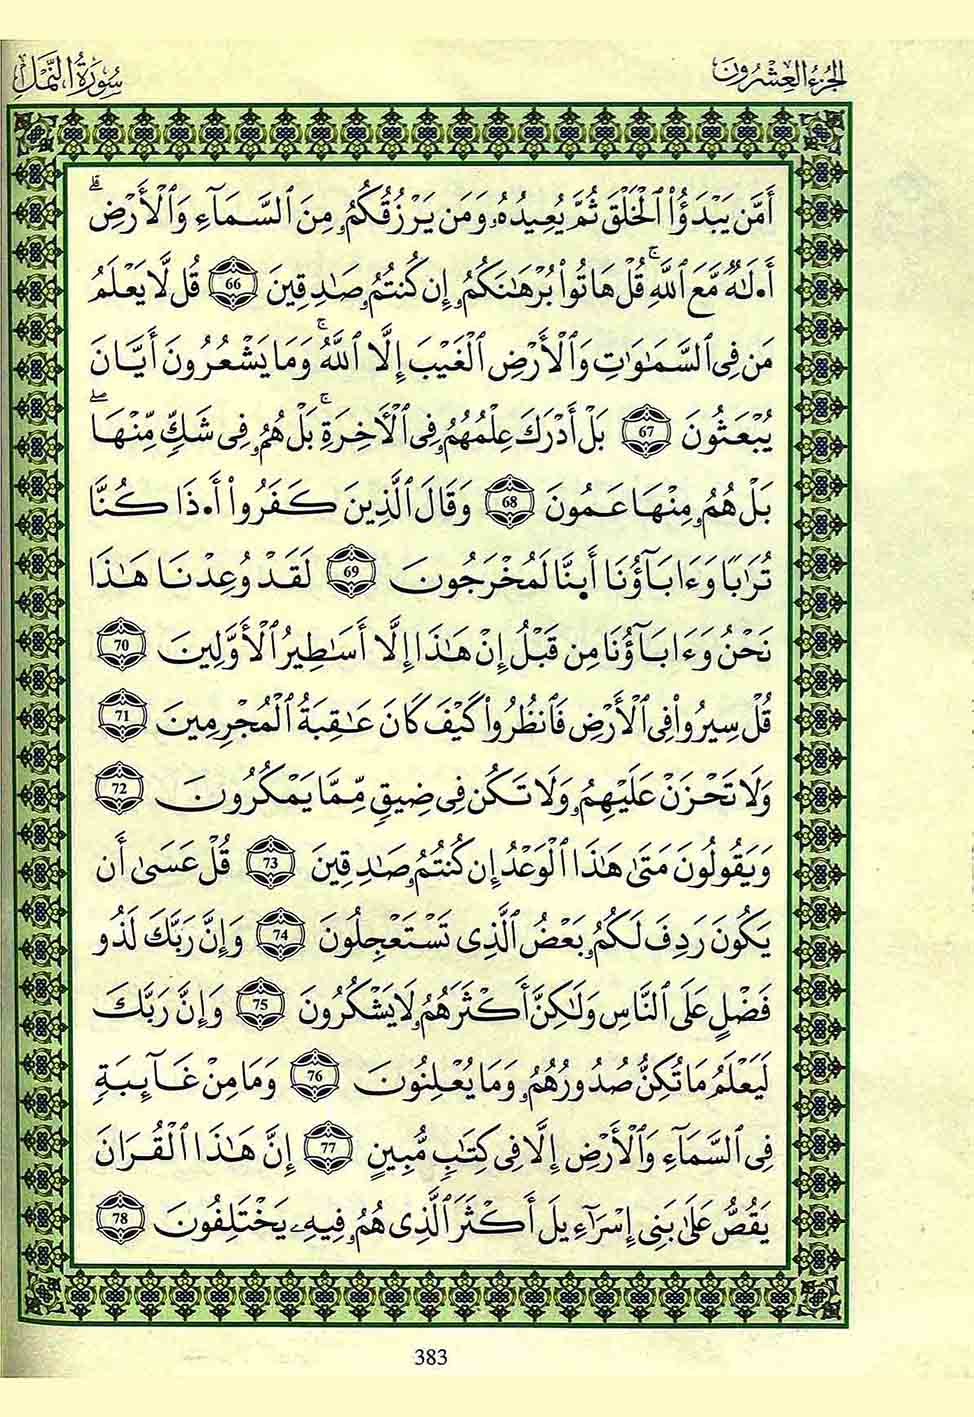 الجزء العشرون
سورة النمل
أَمَّن يَبْدَؤُاْ اُ۬لْخَلْقَ ثُمَّ يُعِيدُهُۥ وَمَن يَرْزُقُكُمُۥ مِنَ اَ۬لسَّمَآءِ وَالْأَرْضِۗ
أَ.لَٰهٌ مَّعَ اَ۬للَّهِۚ قُلْ هَاتُواْ بُرْهَٰنَكُمُۥ إِن كُنتُمُۥ صَٰدِقِينَ 66 قُل لَّا يَعْلَمُ
مَن فِى اِ۬لسَّمَٰوَٰتِ وَالْأَرْضِ اِ۬لْغَيْبَ إِلَّا اَ۬للَّهُۚ وَمَا يَشْعُرُونَ أَيَّانَ
يُبْعَثُونَ 67 بَلْ أَدْرَكَ عِلْمُهُمُۥ فِى اِ۬لْأَخِرَةِۚ بَلْ هُمُۥ فِى شَكٍّ مِّنْهَاۖ
بَلْ هُمُۥ مِنْهَا عَمُونَ 68 وَقَالَ اَ۬لَّذِينَ كَفَرُواْ أَ.ذَا كُنَّا
تُرَٰبًا وَءَابَآؤُنَا أَى.نَّا لَمُخْرَجُونَ 69 لَقَدْ وُعِدْنَا هَٰذَا
نَحْنُ وَءَابَآؤُنَا مِن قَبْلُ إِنْ هَٰذَا إِلَّا أَسَٰطِيرُ اُ۬لْأَوَّلِينَ 70
قُلْ سِيرُواْ فِى اِ۬لْأَرْضِ فَانظُرُواْ كَيْفَ كَانَ عَٰقِبَةُ اُ۬لْمُجْرِمِينَ 71
وَلَا تَحْزَنْ عَلَيْهِمُۥ وَلَا تَكُن فِى ضِيقٍ مِّمَّا يَمْكُرُونَ 72
وَيَقُولُونَ مَتَىٰ هَٰذَا اَ۬لْوَعْدُ إِن كُنتُمُۥ صَٰدِقِينَ 73 قُلْ عَسَىٰ أَن
يَكُونَ رَدِفَ لَكُمُۥ بَعْضُ اُ۬لَّذِى تَسْتَعْجِلُونَ 74 وَإِنَّ رَبَّكَ لَذُو
فَضْلٍ عَلَى اَ۬لنَّاسِ وَلَٰكِنَّ أَكْثَرَهُمُۥ لَا يَشْكُرُونَ 75 وَإِنَّ رَبَّكَ
لَيَعْلَمُ مَا تُكِنُّ صُدُورُهُمُۥ وَمَا يُعْلِنُونَ 76 وَمَا مِنْ غَآئِبَةٍ
فِى اِ۬لسَّمَآءِ وَالْأَرْضِ إِلَّا فِى كِتَٰبٍ مُّبِينٍ 77 إِنَّ هَٰذَا اَ۬لْقُرَانَ
يَقُصُّ عَلَىٰ بَنِى إِسْرَآءِيلَ أَكْثَرَ اَ۬لَّذِى هُمُۥ فِيهِۦ يَخْتَلِفُونَ 78
383